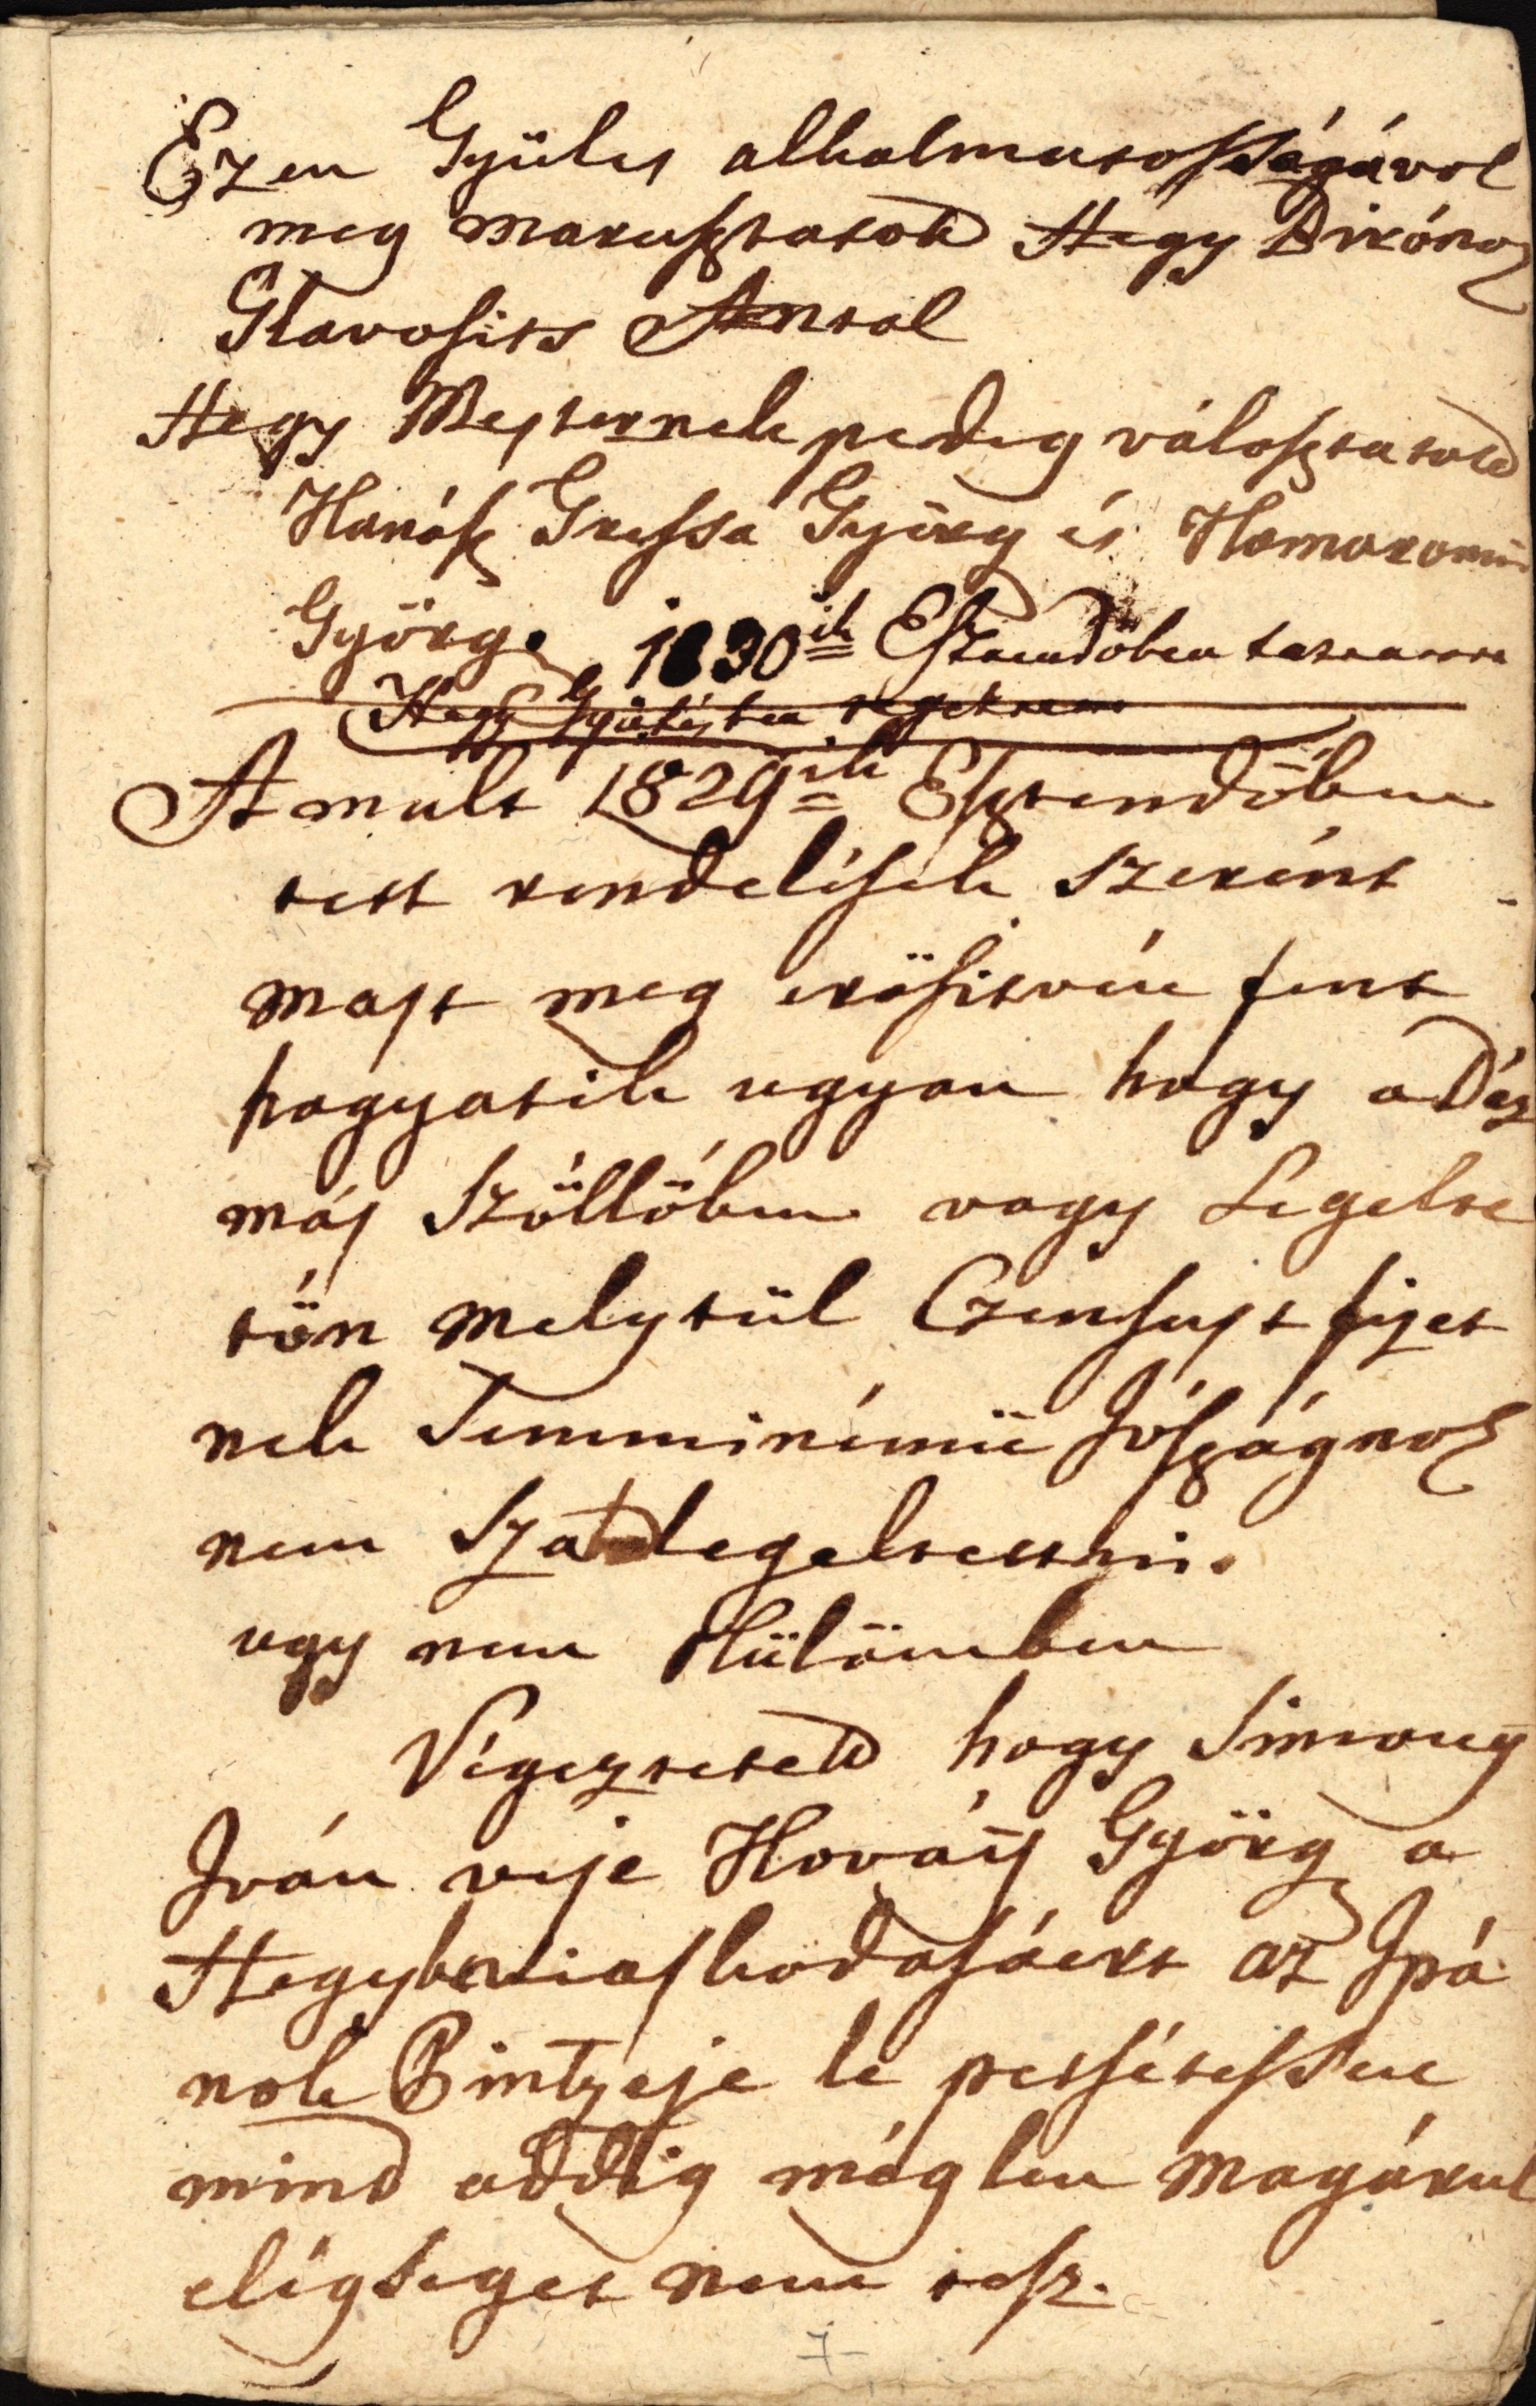 Ezen Gyülés alkalmatosságával
meg marasztatott Hegy Birónaz
Glavosits Antal
Hegy Mesternek pedig választatott
Kanász Gressa Györg és Komaromi
Györg. 1830ik Esztendöben tartatott
Hegy Gyülésben végeztetett
A mult 1829ik Esztendőben
tett rendelések szerént
most meg erösitvén fent
hagyatik ugyan hogy a Déz
máj Szöllőben vagy Legelte
tőn melytül Czensust fizet
nek Semminémü Jószágnak
nem Szabad legeltettni.
ugy nem Külömben
Végeztetett hogy Simony
Iván veje Kováts Györg a
Hegybeli áskodásáért az Ipá
nak Pintzeje le petsétessen
mind addig még len magárul
elégséget nem tesz.
7